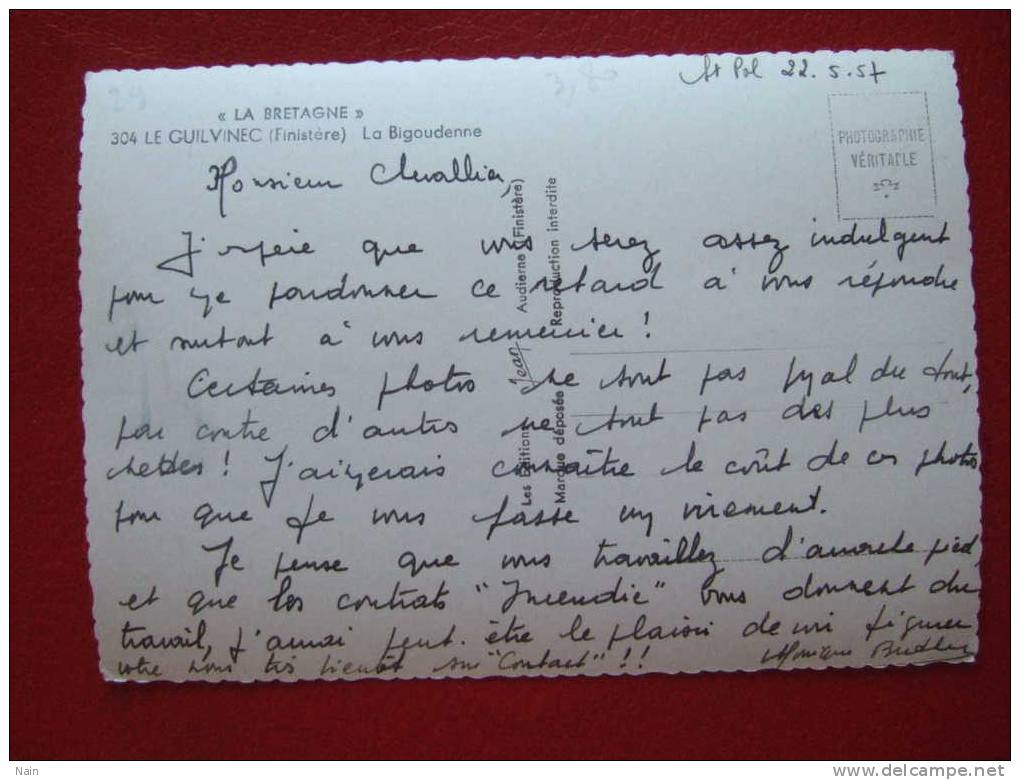 St Pol 22.5.57
« LA BRETAGNE »
304 LE GUILVINEC (Finistère) La Bigoudenne
PHOTOGRAPHIE
VÉRITABLE
Monsieur Chevallier,
J'espère que vous serez assez indulgent
pour me pardonner ce retard à vous répondre
et surtout à vous remercier !
Certaines photos ne sont pas mal du tout,
par contre d'autres ne sont pas des plus
nettes ! J'aimerais connaître le coût de ces photos
pour que je vous fasse un virement.
Je pense que vous travaillez d'arrache pied
et que les contrats "Incendie" vous donnent du
travail, j'aurai peut-être le plaisir de voir figurer
votre nom très bientôt sur "Contact" !!
Monique
Les Editions Jean Audierne (Finistère)
Marque déposée Reproduction interdite
Nain
www.delcampe.net